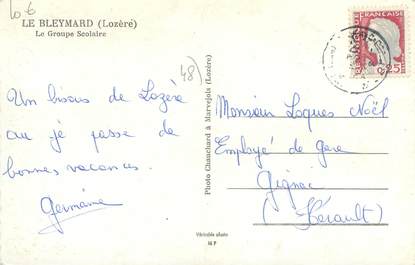 10 €
LE BLEYMARD (Lozère)
Le Groupe Scolaire
48)
Un bisous de Lozère
au je passe de
bonnes vacances.
Germaine
Photo Chauchard à Marvejols (Lozère)
Véritable photo
FRANÇAISE
Monsieur Loques Noël
Employé de gare
Gignac
(Hérault)